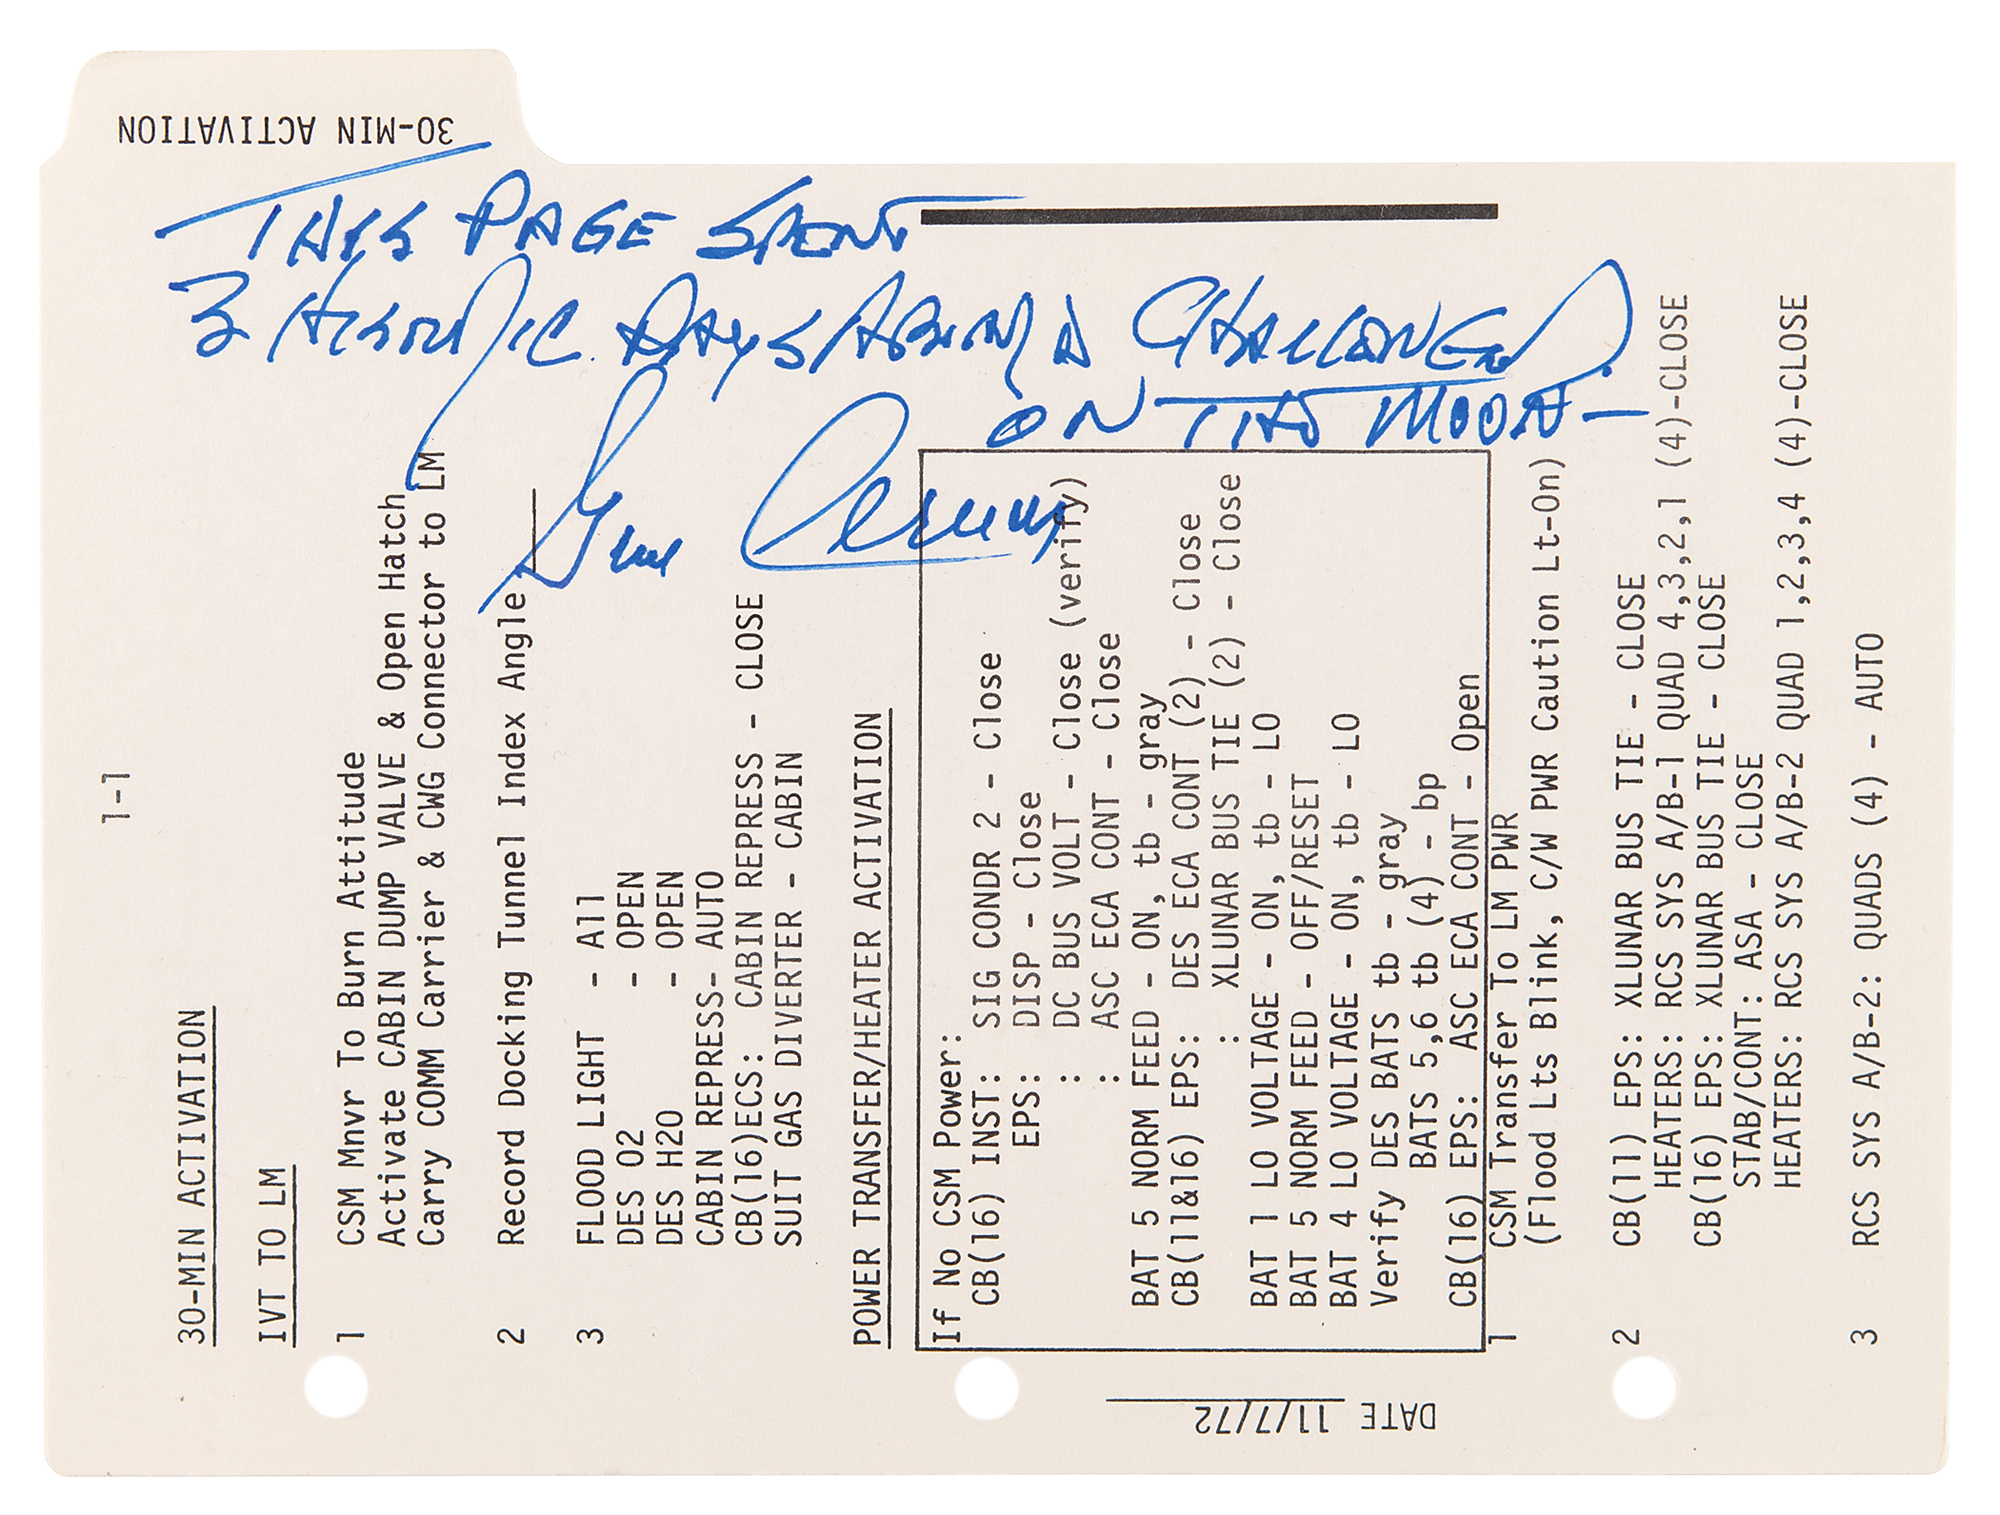 30-MIN ACTIVATION
THIS PAGE SPENT
3 HISTORIC DAYS ABOARD CHALLENGER
ON THE MOON-
Gene Cernan
1-1
30-MIN ACTIVATION
IVT TO LM
1 CSM Mnvr To Burn Attitude
Activate CABIN DUMP VALVE & Open Hatch
Carry COMM Carrier & CWG Connector to LM
2 Record Docking Tunnel Index Angle
3 FLOOD LIGHT - All
DES O2 - OPEN
DES H2O - OPEN
CABIN REPRESS- AUTO
CB(16)ECS: CABIN REPRESS - CLOSE
SUIT GAS DIVERTER - CABIN
POWER TRANSFER/HEATER ACTIVATION
If No CSM Power:
CB(16) INST: SIG CONDR 2 - Close
EPS: DISP - Close
: DC BUS VOLT - Close (verify)
: ASC ECA CONT - Close
BAT 5 NORM FEED - ON, tb - gray
CB(11&16) EPS: DES ECA CONT (2) - Close
: XLUNAR BUS TIE (2) - Close
BAT 1 LO VOLTAGE - ON, tb - LO
BAT 5 NORM FEED - OFF/RESET
BAT 4 LO VOLTAGE - ON, tb - LO
Verify DES BATS tb - gray
BATS 5,6 tb (4) - bp
CB(16) EPS: ASC ECA CONT - Open
1 CSM Transfer To LM PWR
(Flood Lts Blink, C/W PWR Caution Lt-On)
2 CB(11) EPS: XLUNAR BUS TIE - CLOSE
HEATERS: RCS SYS A/B-1 QUAD 4,3,2,1 (4)-CLOSE
CB(16) EPS: XLUNAR BUS TIE - CLOSE
STAB/CONT: ASA - CLOSE
HEATERS: RCS SYS A/B-2 QUAD 1,2,3,4 (4)-CLOSE
3 RCS SYS A/B-2: QUADS (4) - AUTO
DATE 11/7/72